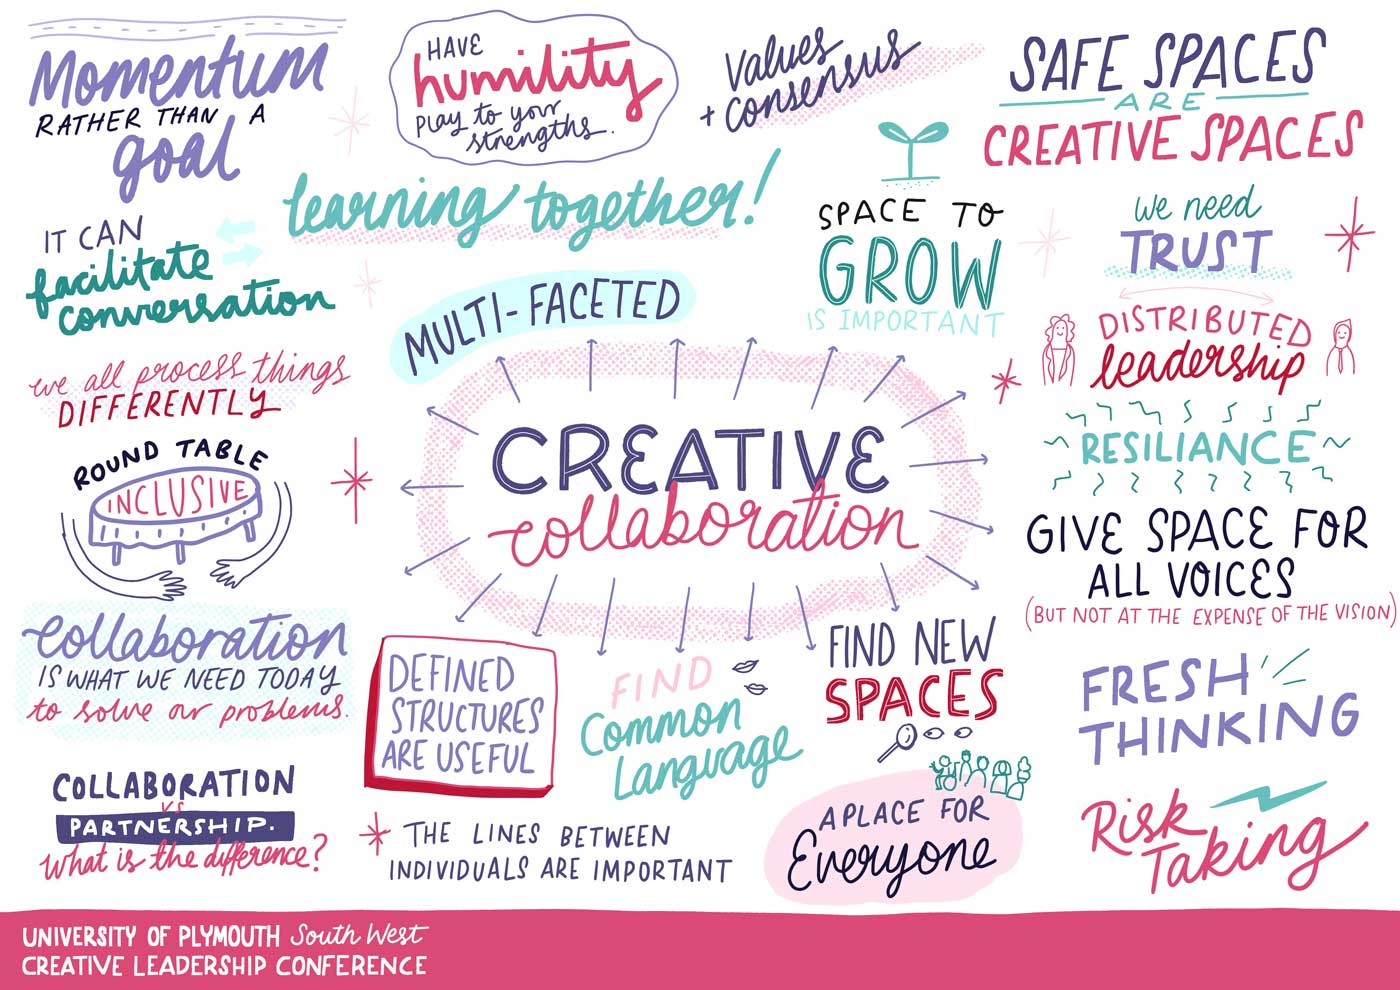 Momentum
RATHER THAN A
goal
HAVE
humility
play to your
strengths.
Values
+ consensus
SAFE SPACES
ARE
CREATIVE SPACES
learning together!
IT CAN
facilitate
conversation
SPACE TO
GROW
IS IMPORTANT
we need
TRUST
MULTI-FACETED
DISTRIBUTED
leadership
we all process things
DIFFERENTLY
RESILIANCE
ROUND TABLE
INCLUSIVE
CREATIVE
collaboration
GIVE SPACE FOR
ALL VOICES
(BUT NOT AT THE EXPENSE OF THE VISION)
Collaboration
IS WHAT WE NEED TODAY
to solve our problems.
DEFINED
STRUCTURES
ARE USEFUL
FIND
Common
Language
FIND NEW
SPACES
FRESH
THINKING
COLLABORATION
VS
PARTNERSHIP.
What is the difference?
THE LINES BETWEEN
INDIVIDUALS ARE IMPORTANT
A PLACE FOR
Everyone
Risk
Taking
UNIVERSITY OF PLYMOUTH South West
CREATIVE LEADERSHIP CONFERENCE